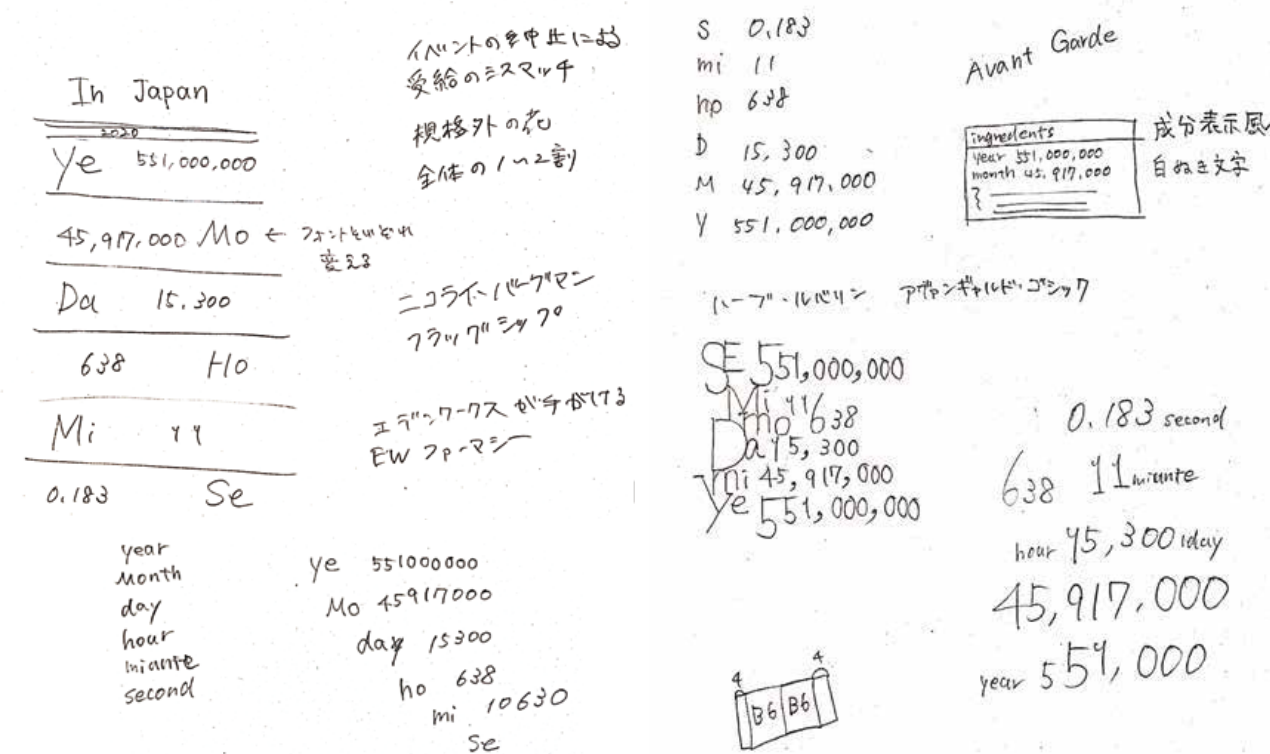 In Japan
2020
Ye 551,000,000
45,917,000 Mo ←
変える
Da 15.300
638 Ho
Mi 11
0.183 Se
イベントの中止による
受給のミスマッチ
規格外の花
全体の1〜2割
ニコライ・バーグマン
フラッグシップ
エデンワークスが手がける
EWファーマシー
year
Month
day
hour
miante
second
ye 551000000
Mo 45917000
day 15300
ho 638
mi 10630
Se
S 0.183
mi 11
ho 638
D 15,300
M 45,917,000
Y 551.000,000
Avant Garde
ingredents
year 551,000,000
month 45,917,000
成分表示風
白ぬき文字
ハーブ・ルバリン アヴァンギャルド・ゴシック
SE 551,000,000
Mi 11
mo 638
Da 15,300
mi 45,917,000
Ye 551,000,000
0.183 second
638 11 miante
hour 15,300 1day
45,917,000
year 551,000
4 4
B6 B6